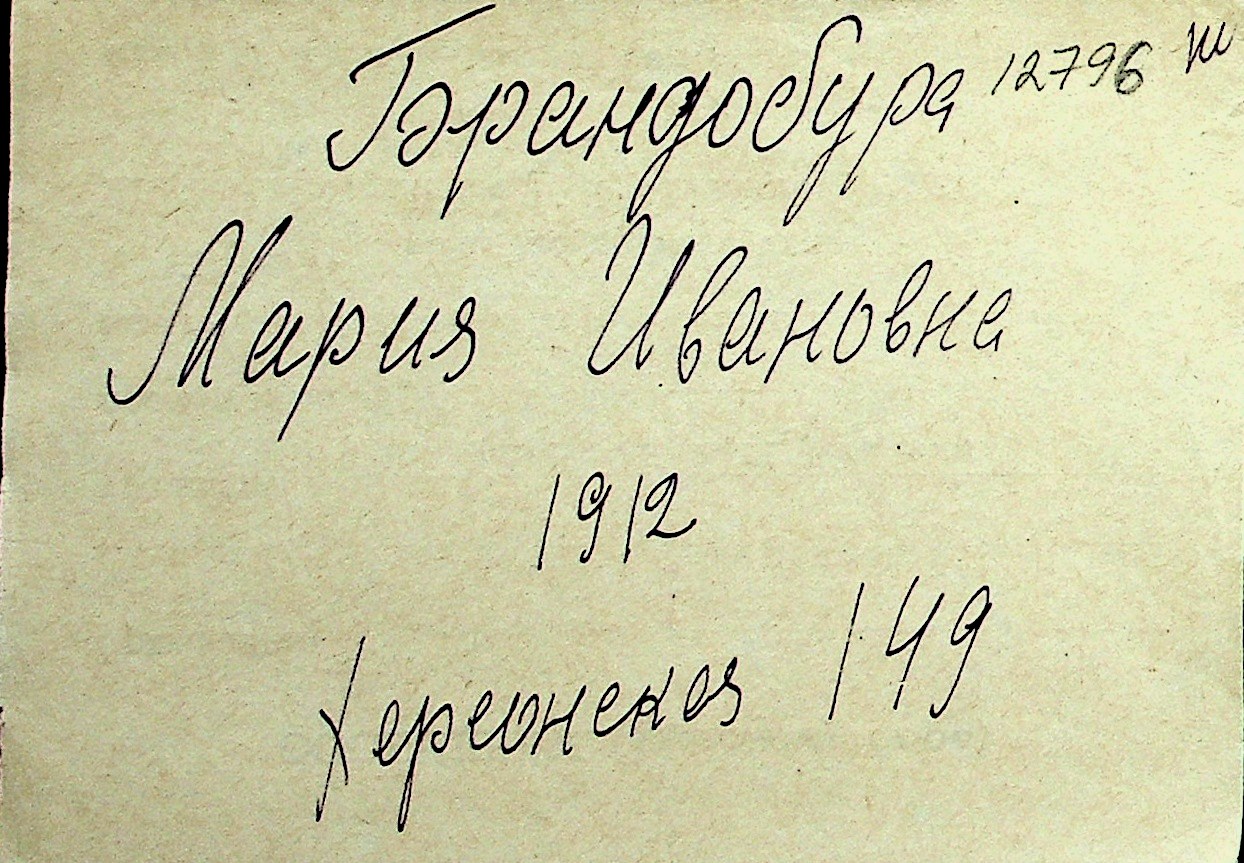 Брандобура 12796 Ш
Мария Ивановна
1912
Херсонская 149